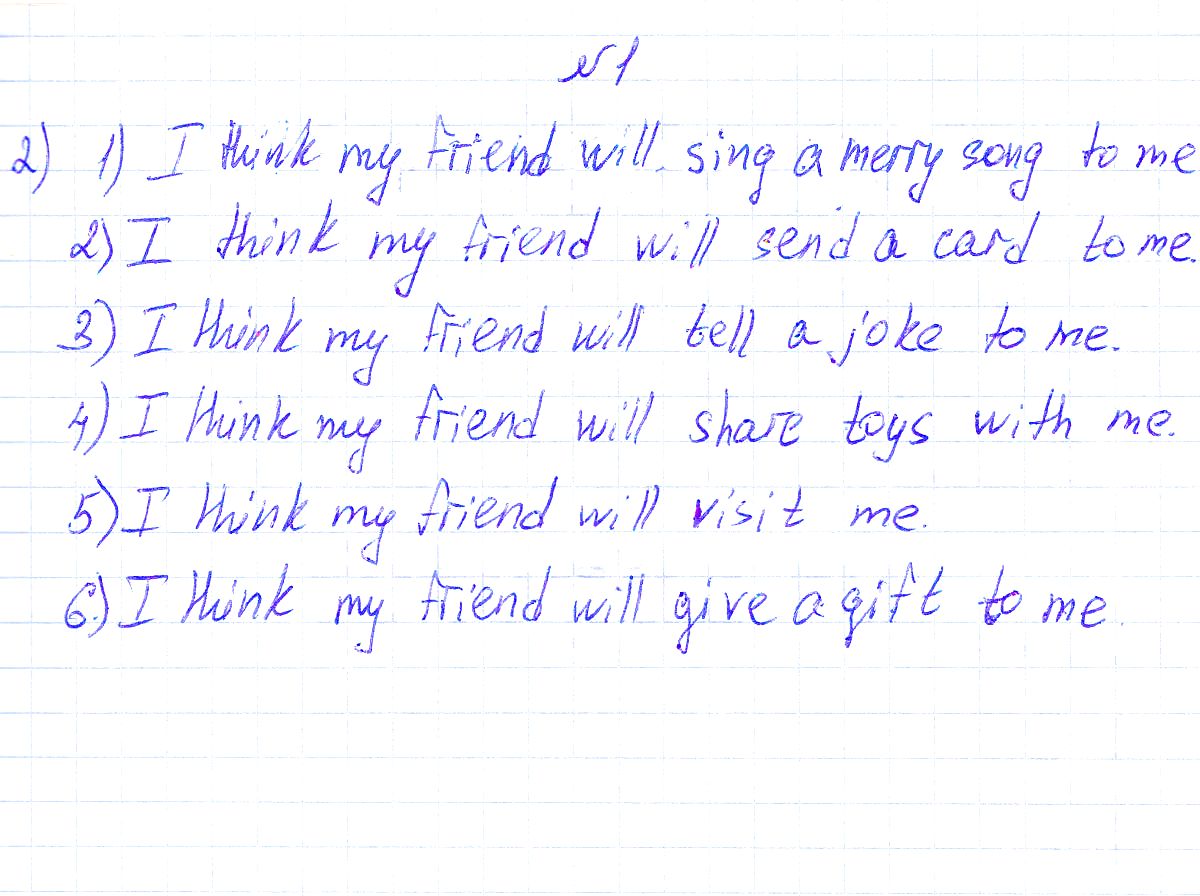 №1
2) 1) I think my friend will sing a merry song to me
2) I think my friend will send a card to me.
3) I think my friend will tell a joke to me.
4) I think my friend will share toys with me.
5) I think my friend will visit me.
6) I think my friend will give a gift to me.